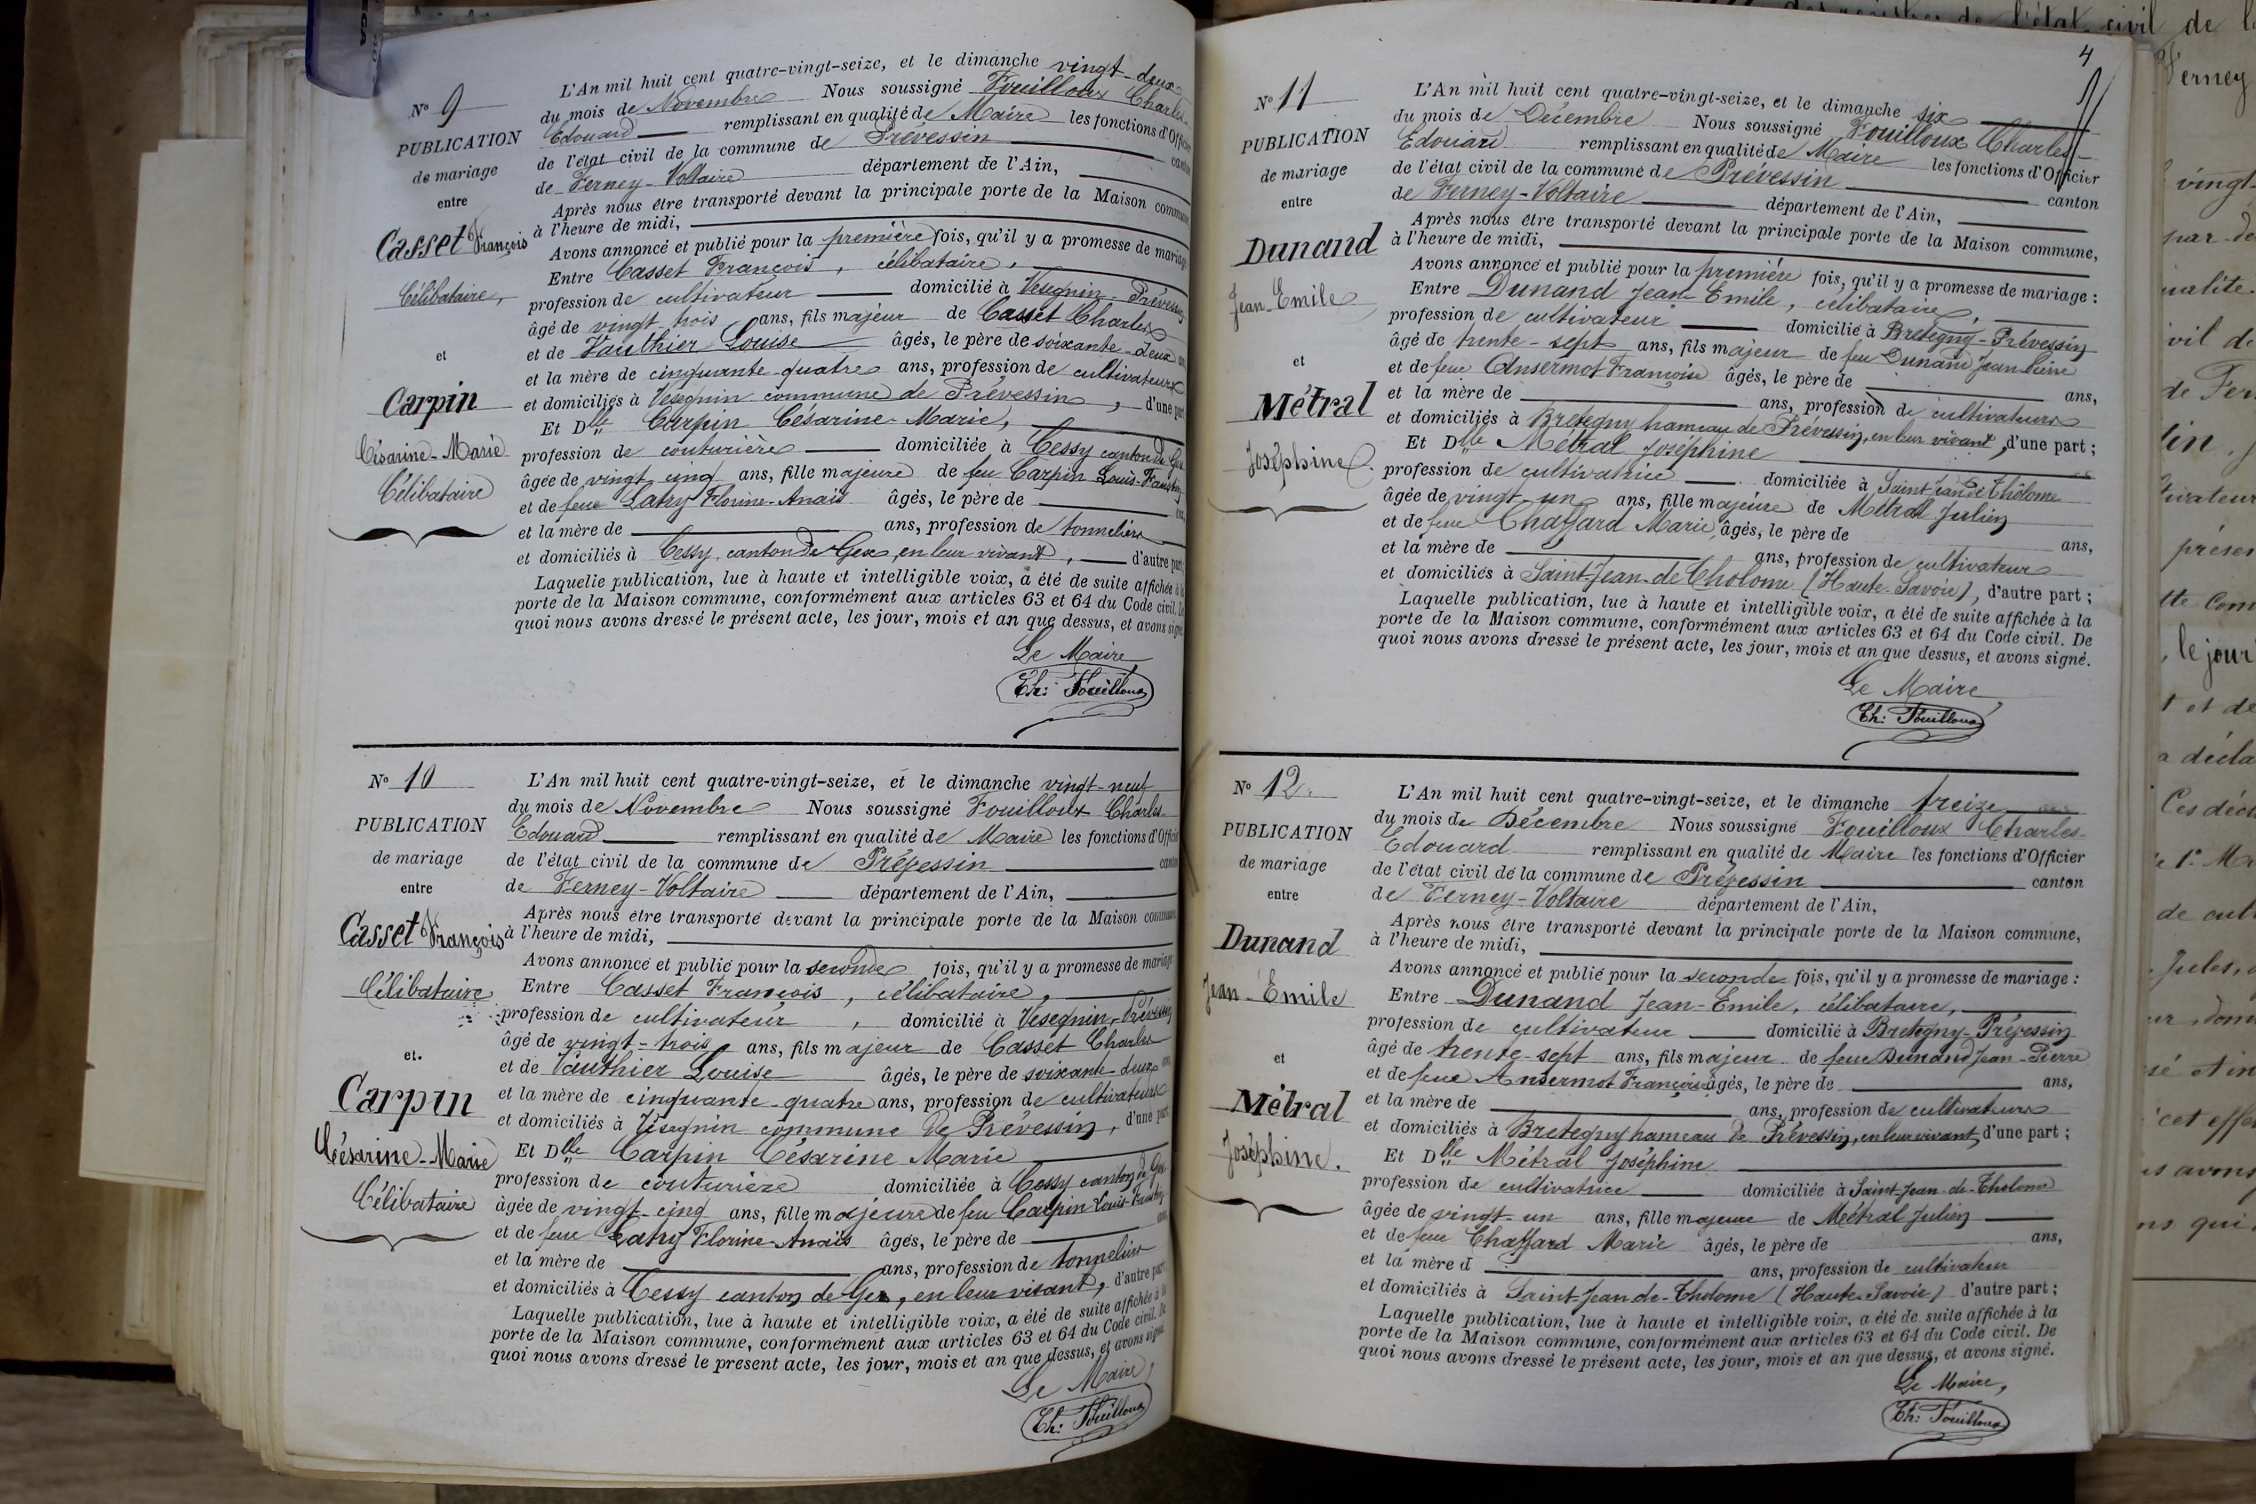 N° 9
PUBLICATION
de mariage
entre
Casset François
Célibataire,
et
Carpin
Césarine-Marie
Célibataire
L'An mil huit cent quatre-vingt-seize, et le dimanche vingt-deux
du mois de Novembre Nous soussigné Fouilloux Charles-
Edouard remplissant en qualité de Maire les fonctions d'Officier
de l'état civil de la commune de Prévessin canton
de Ferney-Voltaire département de l'Ain,
Après nous être transporté devant la principale porte de la Maison commune
à l'heure de midi,
Avons annoncé et publié pour la première fois, qu'il y a promesse de mariage
Entre Casset François, célibataire,
profession de cultivateur domicilié à Vesegnin-Prévessin
âgé de vingt-trois ans, fils majeur de Casset Charles
et de Vauthier Louise âgés, le père de soixante-deux ans
et la mère de cinquante-quatre ans, profession de cultivateurs
et domiciliés à Vesegnin commune de Prévessin, d'une part
Et Dlle Carpin Césarine-Marie,
profession de couturière domiciliée à Cessy canton de Gex
âgée de vingt cinq ans, fille majeure de feu Carpin Louis-
et de feue Florine-Anaïs âgés, le père de ans,
et la mère de ans, profession de tonnelier
et domiciliés à Cessy, canton de Gex, en leur vivant, d'autre part;
Laquelle publication, lue à haute et intelligible voix, a été de suite affichée à la
porte de la Maison commune, conformément aux articles 63 et 64 du Code civil. De
quoi nous avons dressé le présent acte, les jour, mois et an que dessus, et avons signé.
Le Maire,
Ch: Fouilloux
N° 10
PUBLICATION
de mariage
entre
Casset François
Célibataire
et.
Carpin
Césarine-Marie
Célibataire
L'An mil huit cent quatre-vingt-seize, et le dimanche vingt-neuf
du mois de Novembre Nous soussigné Fouilloux Charles-
Edouard remplissant en qualité de Maire les fonctions d'Officier
de l'état civil de la commune de Prévessin canton
de Ferney-Voltaire département de l'Ain,
Après nous être transporté devant la principale porte de la Maison commune
à l'heure de midi,
Avons annoncé et publié pour la seconde fois, qu'il y a promesse de mariage
Entre Casset François, célibataire,
profession de cultivateur, domicilié à Vesegnin-Prévessin
âgé de vingt-trois ans, fils majeur de Casset Charles
et de Vauthier Louise âgés, le père de soixante-deux ans
et la mère de cinquante-quatre ans, profession de cultivateurs
et domiciliés à Vesegnin commune de Prévessin, d'une part
Et Dlle Carpin Césarine Marie
profession de couturière domiciliée à Cessy canton de Gex
âgée de vingt-cinq ans, fille majeure de feu Carpin Louis-
et de feue Florine-Anaïs âgés, le père de ans
et la mère de ans, profession de tonnelier
et domiciliés à Cessy canton de Gex, en leur vivant, d'autre part
Laquelle publication, lue à haute et intelligible voix, a été de suite affichée à la
porte de la Maison commune, conformément aux articles 63 et 64 du Code civil. De
quoi nous avons dressé le présent acte, les jour, mois et an que dessus, et avons signé.
Le Maire,
Ch: Fouilloux
4
N° 11
PUBLICATION
de mariage
entre
Dunand
Jean-Emile
et
Métral
Joséphine.
L'An mil huit cent quatre-vingt-seize, et le dimanche six
du mois de Décembre Nous soussigné Fouilloux Charles-
Edouard remplissant en qualité de Maire les fonctions d'Officier
de l'état civil de la commune de Prévessin canton
de Ferney-Voltaire département de l'Ain,
Après nous être transporté devant la principale porte de la Maison commune,
à l'heure de midi,
Avons annoncé et publié pour la première fois, qu'il y a promesse de mariage :
Entre Dunand Jean-Emile, célibataire,
profession de cultivateur domicilié à Bretegny-Prévessin
âgé de trente-sept ans, fils majeur de feu Dunand Jean Pierre
et de feue Ansermot Françoise âgés, le père de ans,
et la mère de ans, profession de cultivateurs
et domiciliés à Bretegny hameau de Prévessin, en leur vivant, d'une part ;
Et Dlle Métral Joséphine
profession de cultivatrice domiciliée à Saint Jean de Tholome
âgée de vingt-un ans, fille majeure de Métral Julien
et de feue Chaffard Marie, âgés, le père de ans,
et la mère de ans, profession de cultivateur
et domiciliés à Saint-Jean-de Tholome (Haute-Savoie), d'autre part ;
Laquelle publication, lue à haute et intelligible voix, a été de suite affichée à la
porte de la Maison commune, conformément aux articles 63 et 64 du Code civil. De
quoi nous avons dressé le présent acte, les jour, mois et an que dessus, et avons signé.
Le Maire
Ch: Fouilloux
N° 12.
PUBLICATION
de mariage
entre
Dunand
Jean-Emile
et
Métral
Joséphine.
L'An mil huit cent quatre-vingt-seize, et le dimanche treize
du mois de Décembre Nous soussigné Fouilloux Charles-
Edouard remplissant en qualité de Maire les fonctions d'Officier
de l'état civil de la commune de Prévessin canton
de Ferney-Voltaire département de l'Ain,
Après nous être transporté devant la principale porte de la Maison commune,
à l'heure de midi,
Avons annoncé et publié pour la seconde fois, qu'il y a promesse de mariage :
Entre Dunand Jean-Emile, célibataire,
profession de cultivateur domicilié à Bretegny-Prévessin
âgé de trente-sept ans, fils majeur de feue Dunand Jean-Pierre
et de feue Ansermot Françoise âgés, le père de ans,
et la mère de ans, profession de cultivateurs
et domiciliés à Bretegny hameau de Prévessin, en leur vivant, d'une part ;
Et Dlle Métral Joséphine
profession de cultivatrice domiciliée à Saint-Jean-de-Tholome
âgée de vingt-un ans, fille majeure de Métral Julien
et de feue Chaffard Marie âgés, le père de ans,
et la mère d ans, profession de cultivateur
et domiciliés à Saint-Jean-de-Tholome (Haute-Savoie) d'autre part ;
Laquelle publication, lue à haute et intelligible voix, a été de suite affichée à la
porte de la Maison commune, conformément aux articles 63 et 64 du Code civil. De
quoi nous avons dressé le présent acte, les jour, mois et an que dessus, et avons signé.
Le Maire,
Ch: Fouilloux
l'état civil de
Ferney
le jour